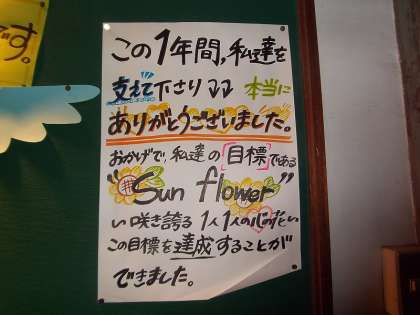 です。
この1年間,私達を
支えて下さり 本当に
ありがとうございました。
おかげで私達の「目標」である
"Sun flower"
い咲き誇る 1人1人の心の花い
この目標を達成することが
できました。